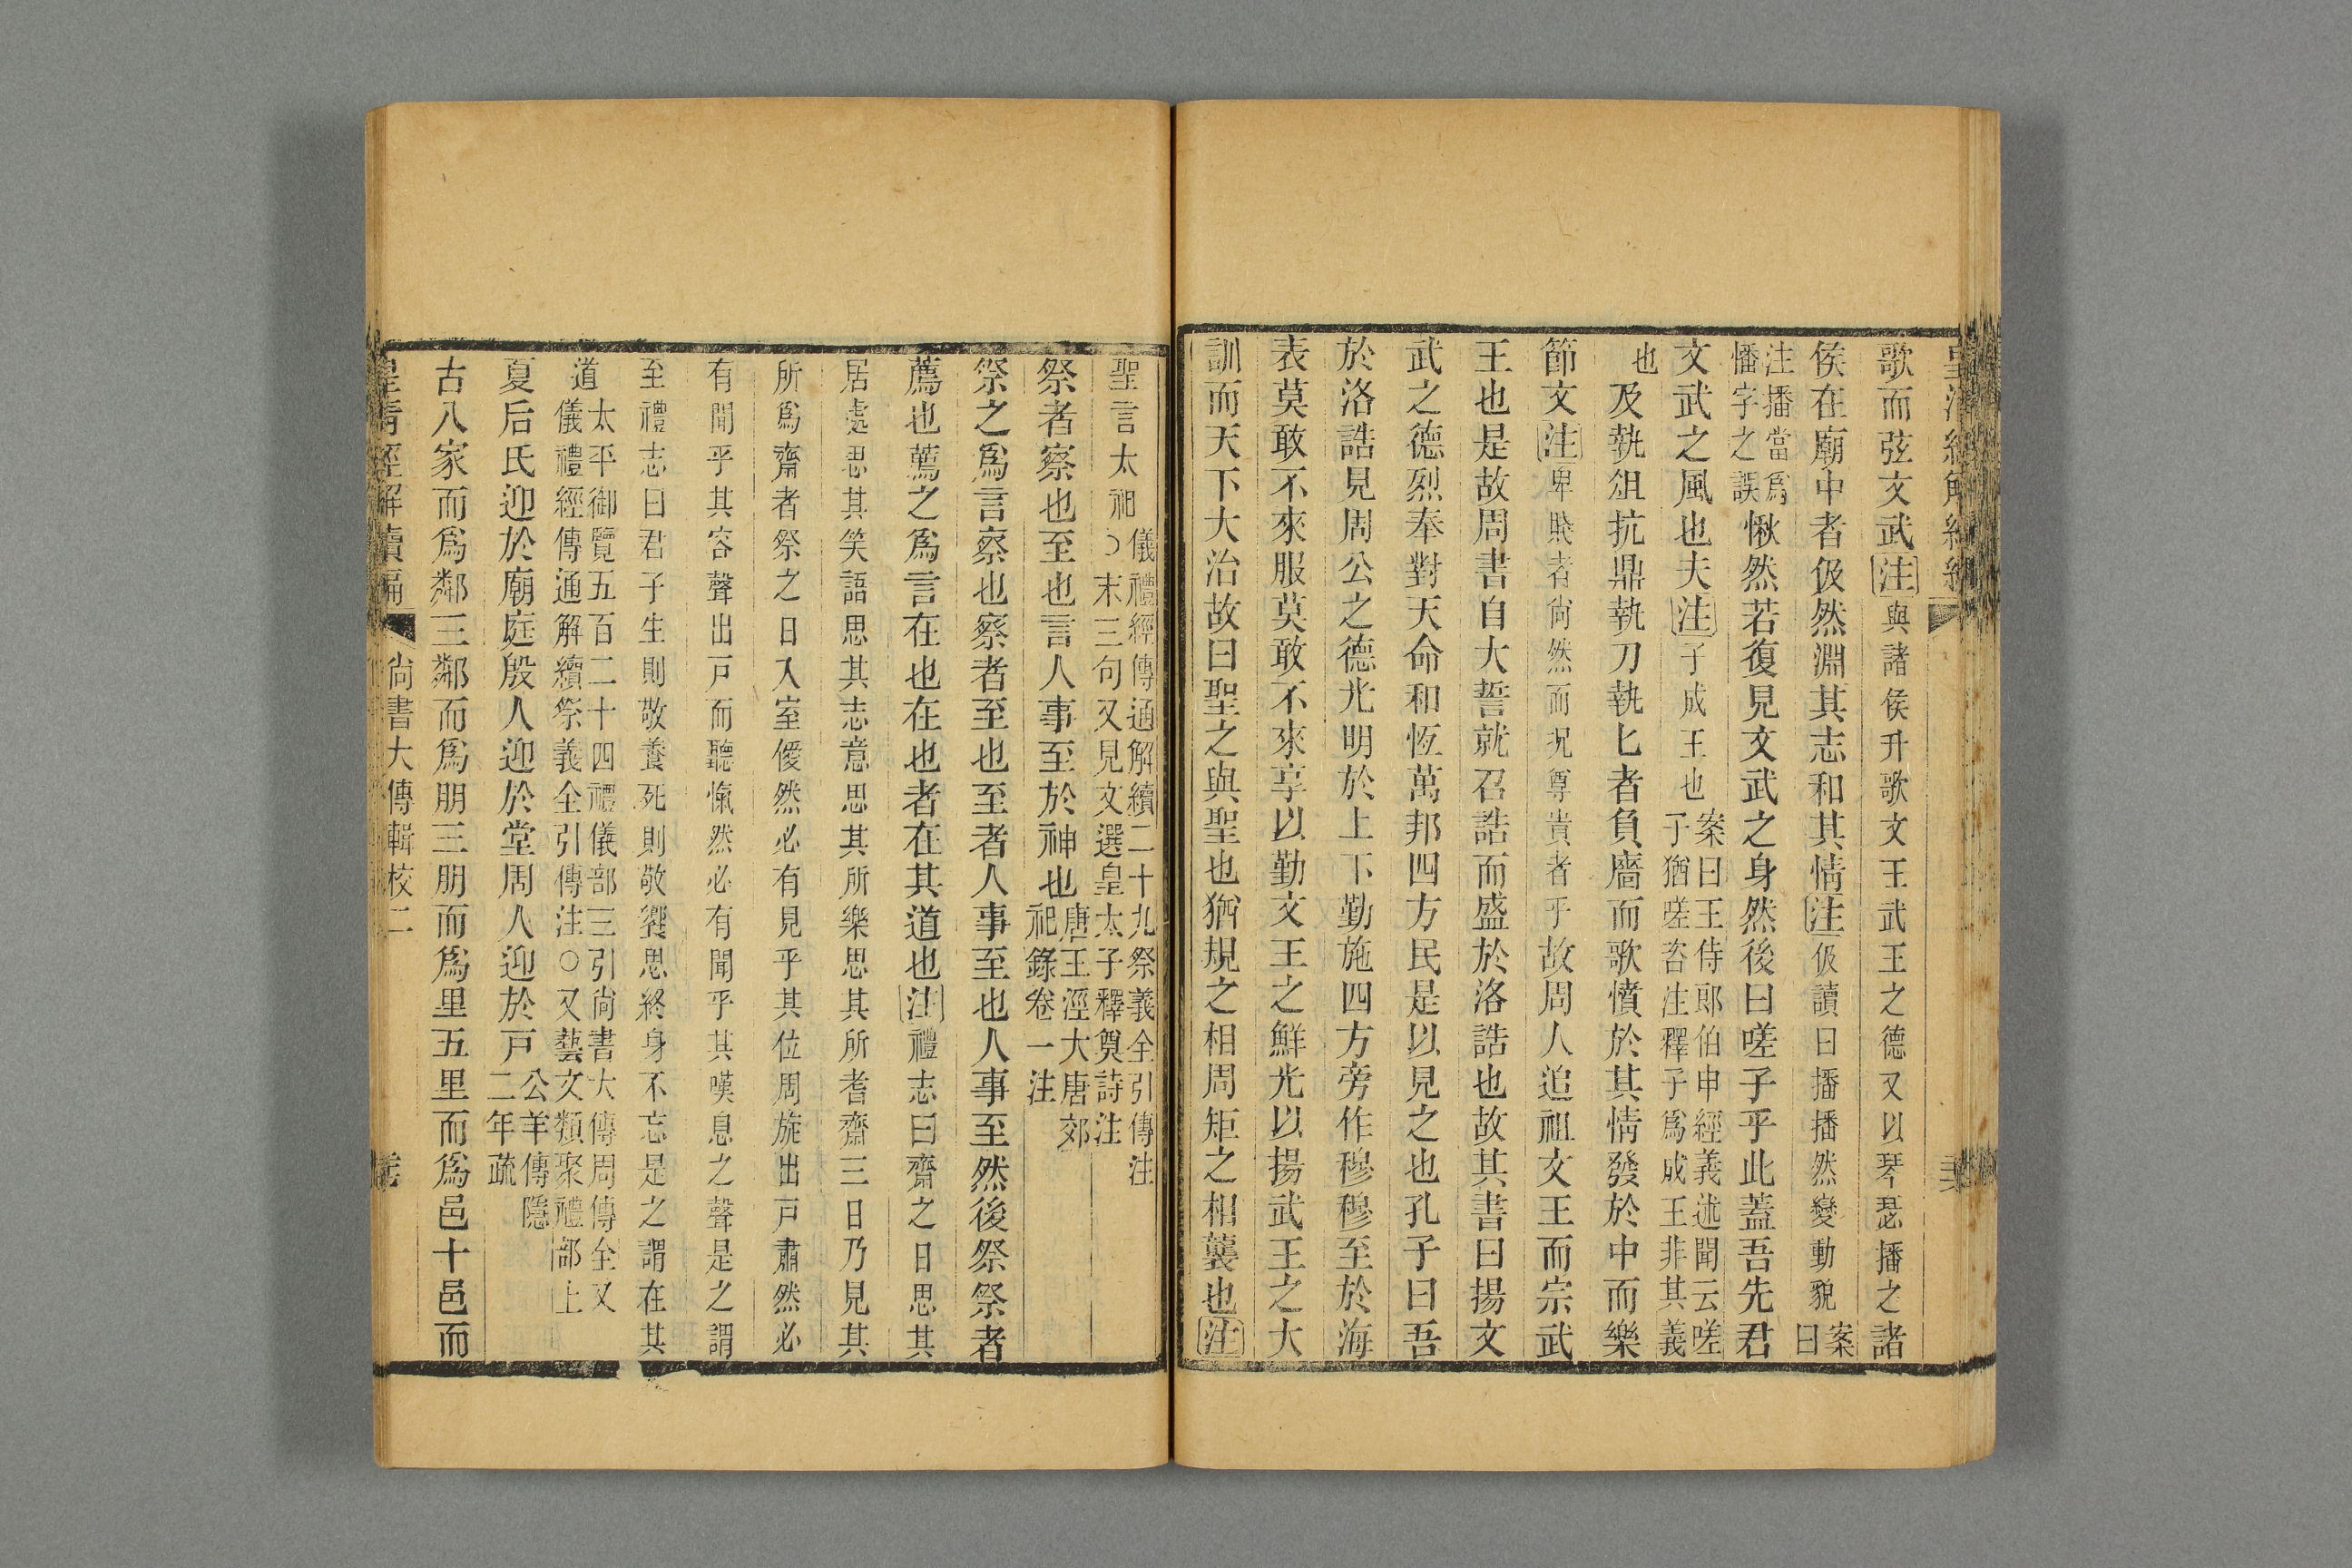 歌而弦文武注與諸侯升歌文王武王之德又以琴瑟播之諸
侯在廟中者伋然淵其志和其情注伋讀曰播播然變動貌案曰
注播當爲幡字之誤愀然若復見文武之身然後曰嗟子乎此蓋吾先君
文武之風也夫注子成王也案曰王侍郎伯申經義述聞云嗟子猶嗟咨注釋子爲成王非其義
也及執俎抗鼎執刀執匕者負廧而歌憤於其情發於中而樂
節文注卑賤者尙然而況尊貴者乎故周人追祖文王而宗武
王也是故周書自大誓就召誥而盛於洛誥也故其書曰揚文
武之德烈奉對天命和恆萬邦四方民是以見之也孔子曰吾
於洛誥見周公之德光明於上下勤施四方旁作穆穆至於海
表莫敢不來服莫敢不來享以勤文王之鮮光以揚武王之大
訓而天下大治故曰聖之與聖也猶規之相周矩之相襲也注
聖言太祖儀禮經傳通解續二十九祭義全引傳注○末三句又見文選皇太子釋奠詩注
祭者察也至也言人事至於神也唐王涇大唐郊祀錄卷一注
祭之爲言察也察者至也至者人事至也人事至然後祭祭者
薦也薦之爲言在也在也者在其道也注禮志曰齋之日思其
居處思其笑語思其志意思其所樂思其所耆齋三日乃見其
所爲齋者祭之日入室僾然必有見乎其位周旋出戸肅然必
有聞乎其容聲出戸而聽愾然必有聞乎其嘆息之聲是之謂
至禮志曰君子生則敬養死則敬饗思終身不忘是之謂在其
道太平御覽五百二十四禮儀部三引尙書大傳周傳全又儀禮經傳通解續祭義全引傳注○又藝文類聚禮部上
夏后氏迎於廟庭殷人迎於堂周人迎於戸公羊傳隱二年疏
古八家而爲鄰三鄰而爲朋三朋而爲里五里而爲邑十邑而
皇淸經解續編 尙書大傳輯校二